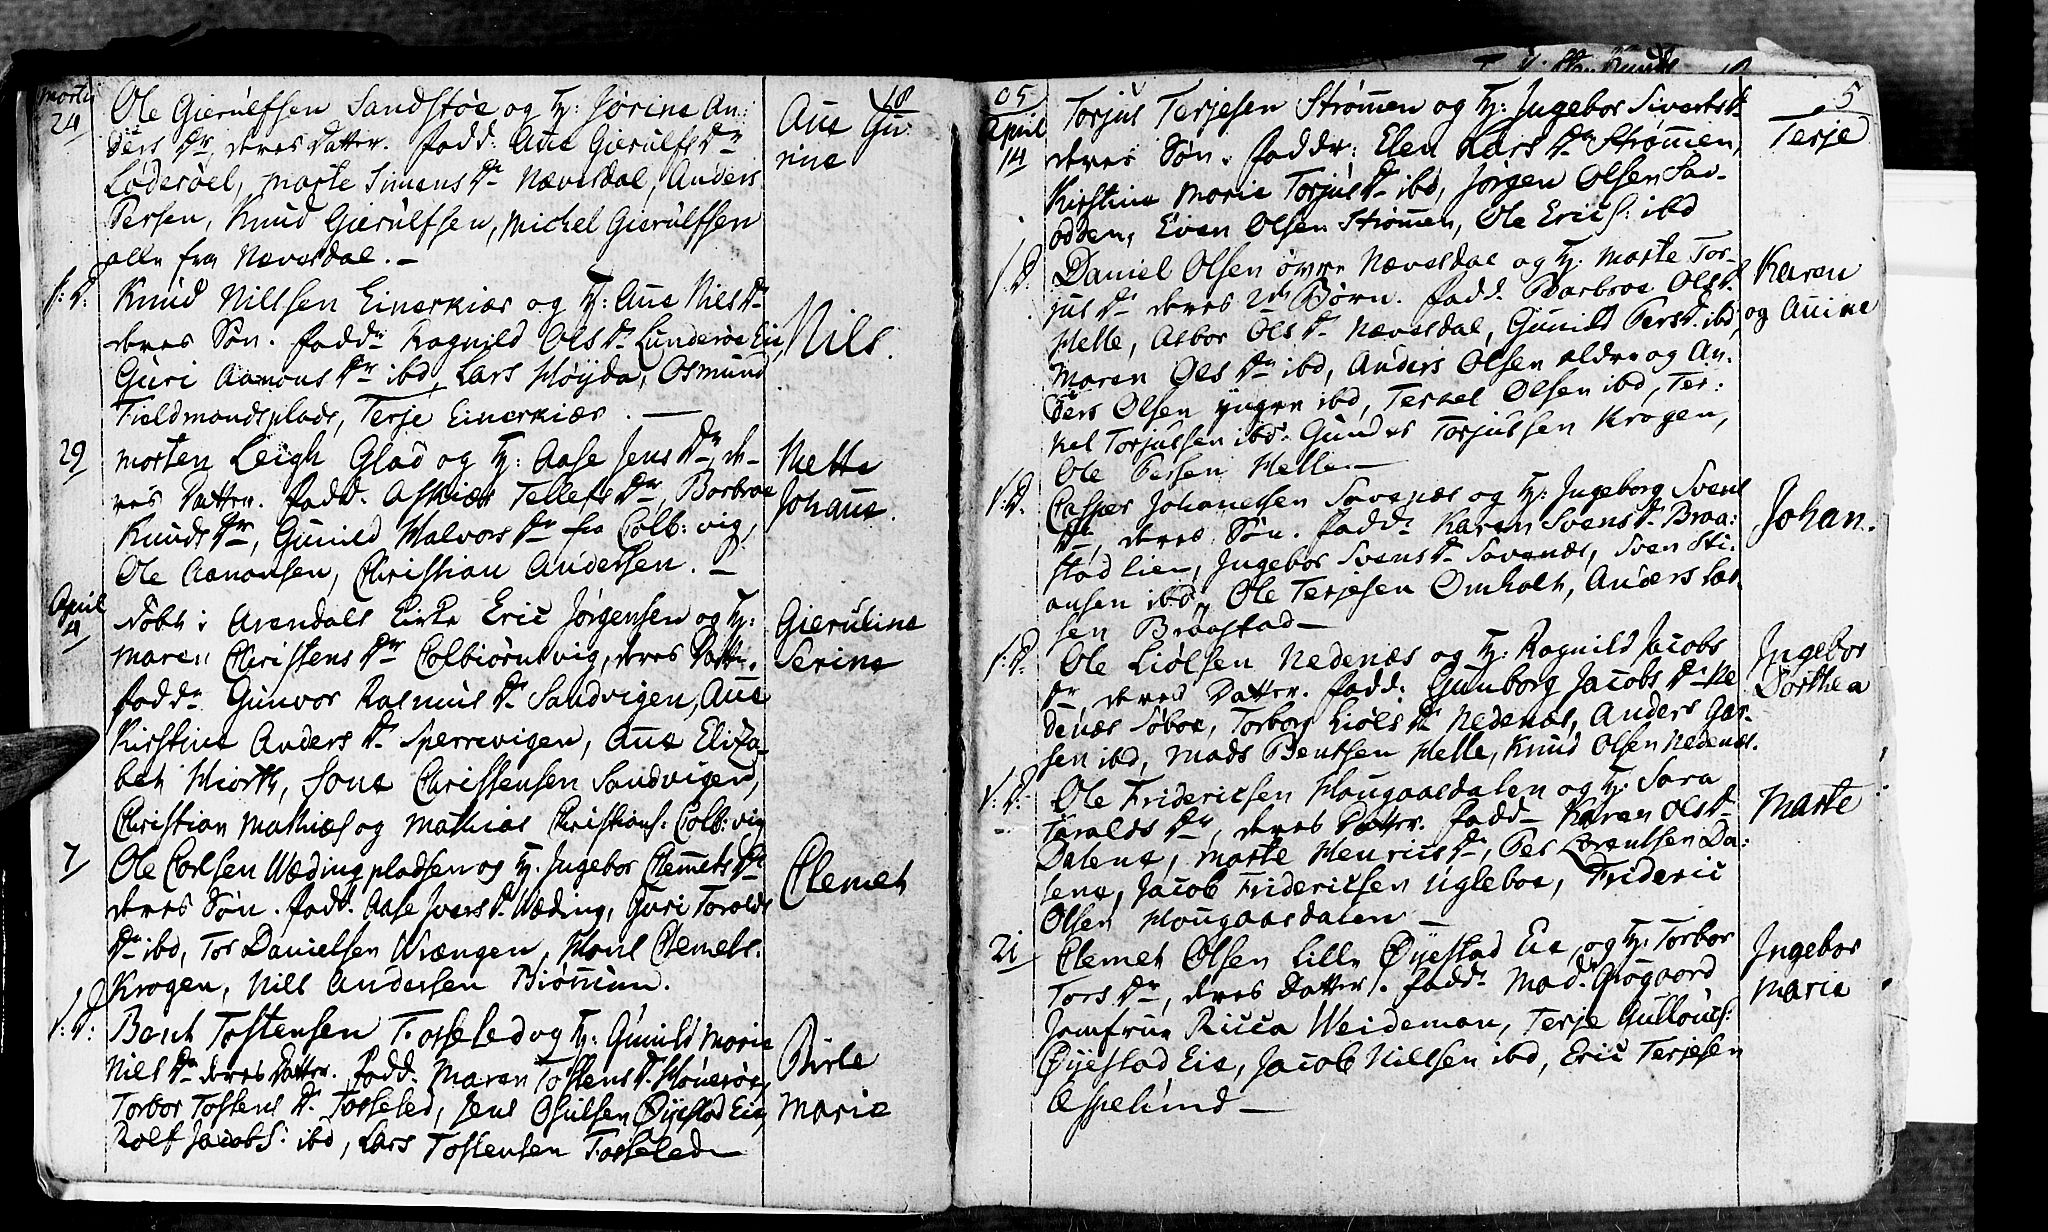 Martij
24
Ole Gierulfsen Sandstøe og H: Jørine An:
ders Dr, deres Datter. fadd: Ane Gierulfs Dr
Løderøel, Marte Simens Dr Nævesdal, Anders
Persen, Knud Gierulfsen, Michel Gierulfsen
alle fra Nævesdal. —
Ane Gu:
rine
18
S: D:
Knud Nillsen Einerkiær og H: Ane Nils Dr
deres Søn. fadd: Ragnild Ols Dr Lunderøe Eie,
Guri Aamons Dr ibd, Lars Høyda, Osmund
Fieldmandsplads, Terje Einerkiær. —
Nils.
29
Morten Leigh Glad og H: Aase Jens Dr, de-
res Datter. fadd. Askiær Tellefs Dr, Barbroe
Knuds Dr, Gunild Halvors Dr fra Colb: vig,
Ole Aamonsen, Christian Andersen. —
Mette
Johane.
April
4
Døbt i Arendals Kirke Eric Jørgensen og H:
Maren Christens Dr Colbiørnsvig, deres Datter.
fadd: Gunvor Rasmus Dr Sandvigen, Ane
Kirstine Anders Dr Sperrevigen, Ane Eliza-
bet Hiorth, Jens Christensen Sandvigen,
Christian Mathias og Mathias Christians: Colb: vig
Gieruline
Serine
7
Ole Carlsen Wædingpladsen og H: Ingebor Clemets Dr
deres Søn. fadd. Aase Ivers Dr Wæding, Guri Toralds
Dr ibd, Tor Danielsen Wrængen, Poul Clemets.
Krogen, Nils Andersen Biønnum.
Clemet
S: D:
Bent Tostensen Fosseled og H: Gunild Marie
Nils Dr deres Datter. fadd: Maren Tostens Dr Houerøe,
Torbor Tostens Dr Fosseled, Jens Osulsen Øyestad Eie,
Rolf Jacobs: ibd, Lars Tostensen Fosseled —
Birte
Marie
05
5
April
14
Torjus Terjesen Strømmen og H: Ingebor Siverts Dr
deres Søn. fadd: Elen Lars Dr Strømmen,
Kirstine Marie Torjus Dr ibd, Jørgen Olsen Sav-
odden, Even Olsen Strømmen, Ole Erics: ibd
Terje
S: D.
Daniel Olsen øvre Nævesdal og H: Marte Tor-
jus Dr deres 2de Børn. fadd. Barbroe Ols Dr
Helle, Asbor Ols Dr Nævesdal, Gunild Pers D. ibd,
Maren Ols Dr ibd, Anders Olsen ældre og An-
ders Olsen yngre ibd, Terkel Olsen ibd, Ter:
kel Torjussen ibd. Gunder Torjussen Krogen,
Ole Persen Helle. —
Karen
og Anine
S: D.
Casper Johanesen Savenæs og H: Ingeborg Svens
Dr, deres Søn. fadd: Karen Svens Dr Braa:
stad lien, Ingebor Svens Dr Savenæs, Sven Sti-
ansen ibd, Ole Terjesen Omholt, Anders Lar-
sen Braastad —
Johan.
S: D.
Ole Liølsen Nedenæs og H: Ragnild Jacobs
Dr, deres Datter. fadd: Gunborg Jacobs Dr Ne
denæs Søboe, Torborg Liøls Dr Nedenæs, Anders Gar-
sen ibd, Mads Bentsen Helle, Knud Olsen Nedenæs.
Ingebor
Dorthea
S: D.
Ole Fridericsen Hougaasdalen og H: Sara
Taralds Dr, deres Datter. fadd— Karen Ols Dr
Dalene, Marte Henrics Dr, Per Lorentsen Da:
lene, Jacob Fridericsen Ugleboe, Frideric
Olsen Hougaasdalen —
Marte
21
Clemet Olsen Lille Øyestad Eie, og H: Torbor
Tors Dr, deres Datter. fadd: Mad. Grøgaard
Jomfrue Ricca Weideman, Terje Gullows:
Øyestad Eie, Jacob Nillsen ibd, Eric Terjesen
Espelund —
Ingebor
Marie